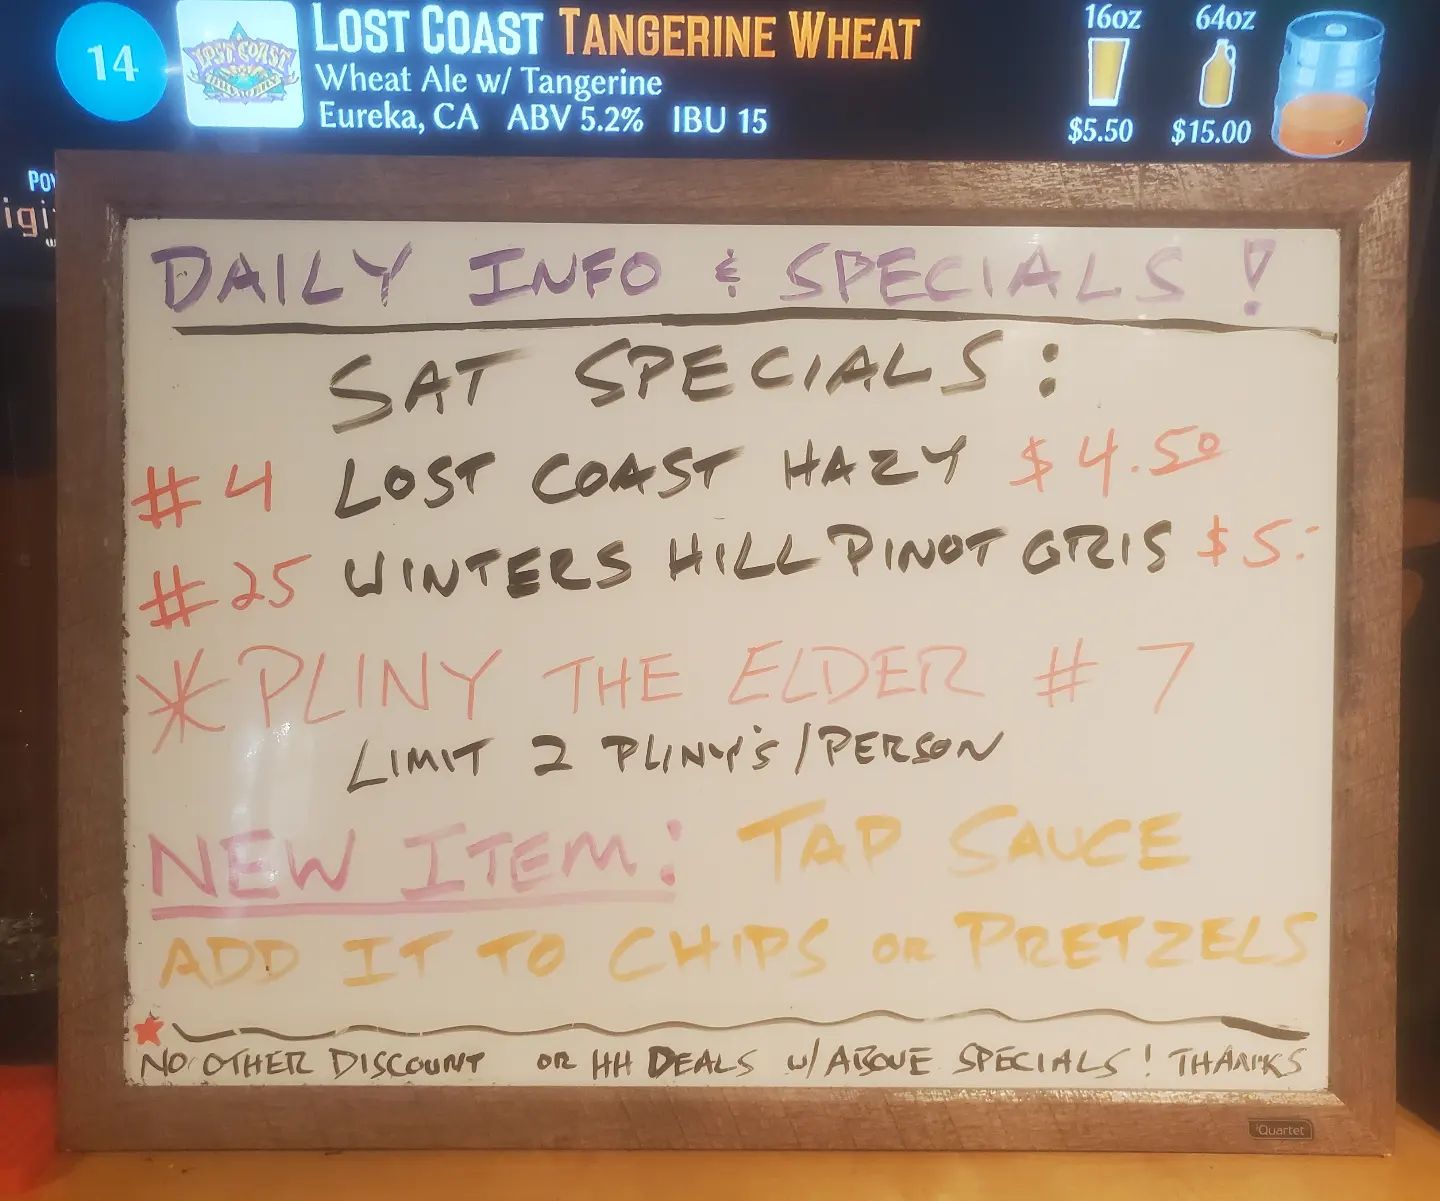 14
LOST COAST
LOST COAST TANGERINE WHEAT
Wheat Ale w/ Tangerine
Eureka, CA ABV 5.2% IBU 15
16oz 64oz
$5.50 $15.00
DAILY INFO & SPECIALS!
SAT SPECIALS:
#4 LOST COAST HAZY $4.50
#25 WINTERS HILL PINOT GRIS $5.-
*PLINY THE ELDER #7
LIMIT 2 PLINY'S/PERSON
NEW ITEM: TAP SAUCE
ADD IT TO CHIPS OR PRETZELS
NO OTHER DISCOUNT OR HH DEALS W/ ABOVE SPECIALS! THANKS
Quartet